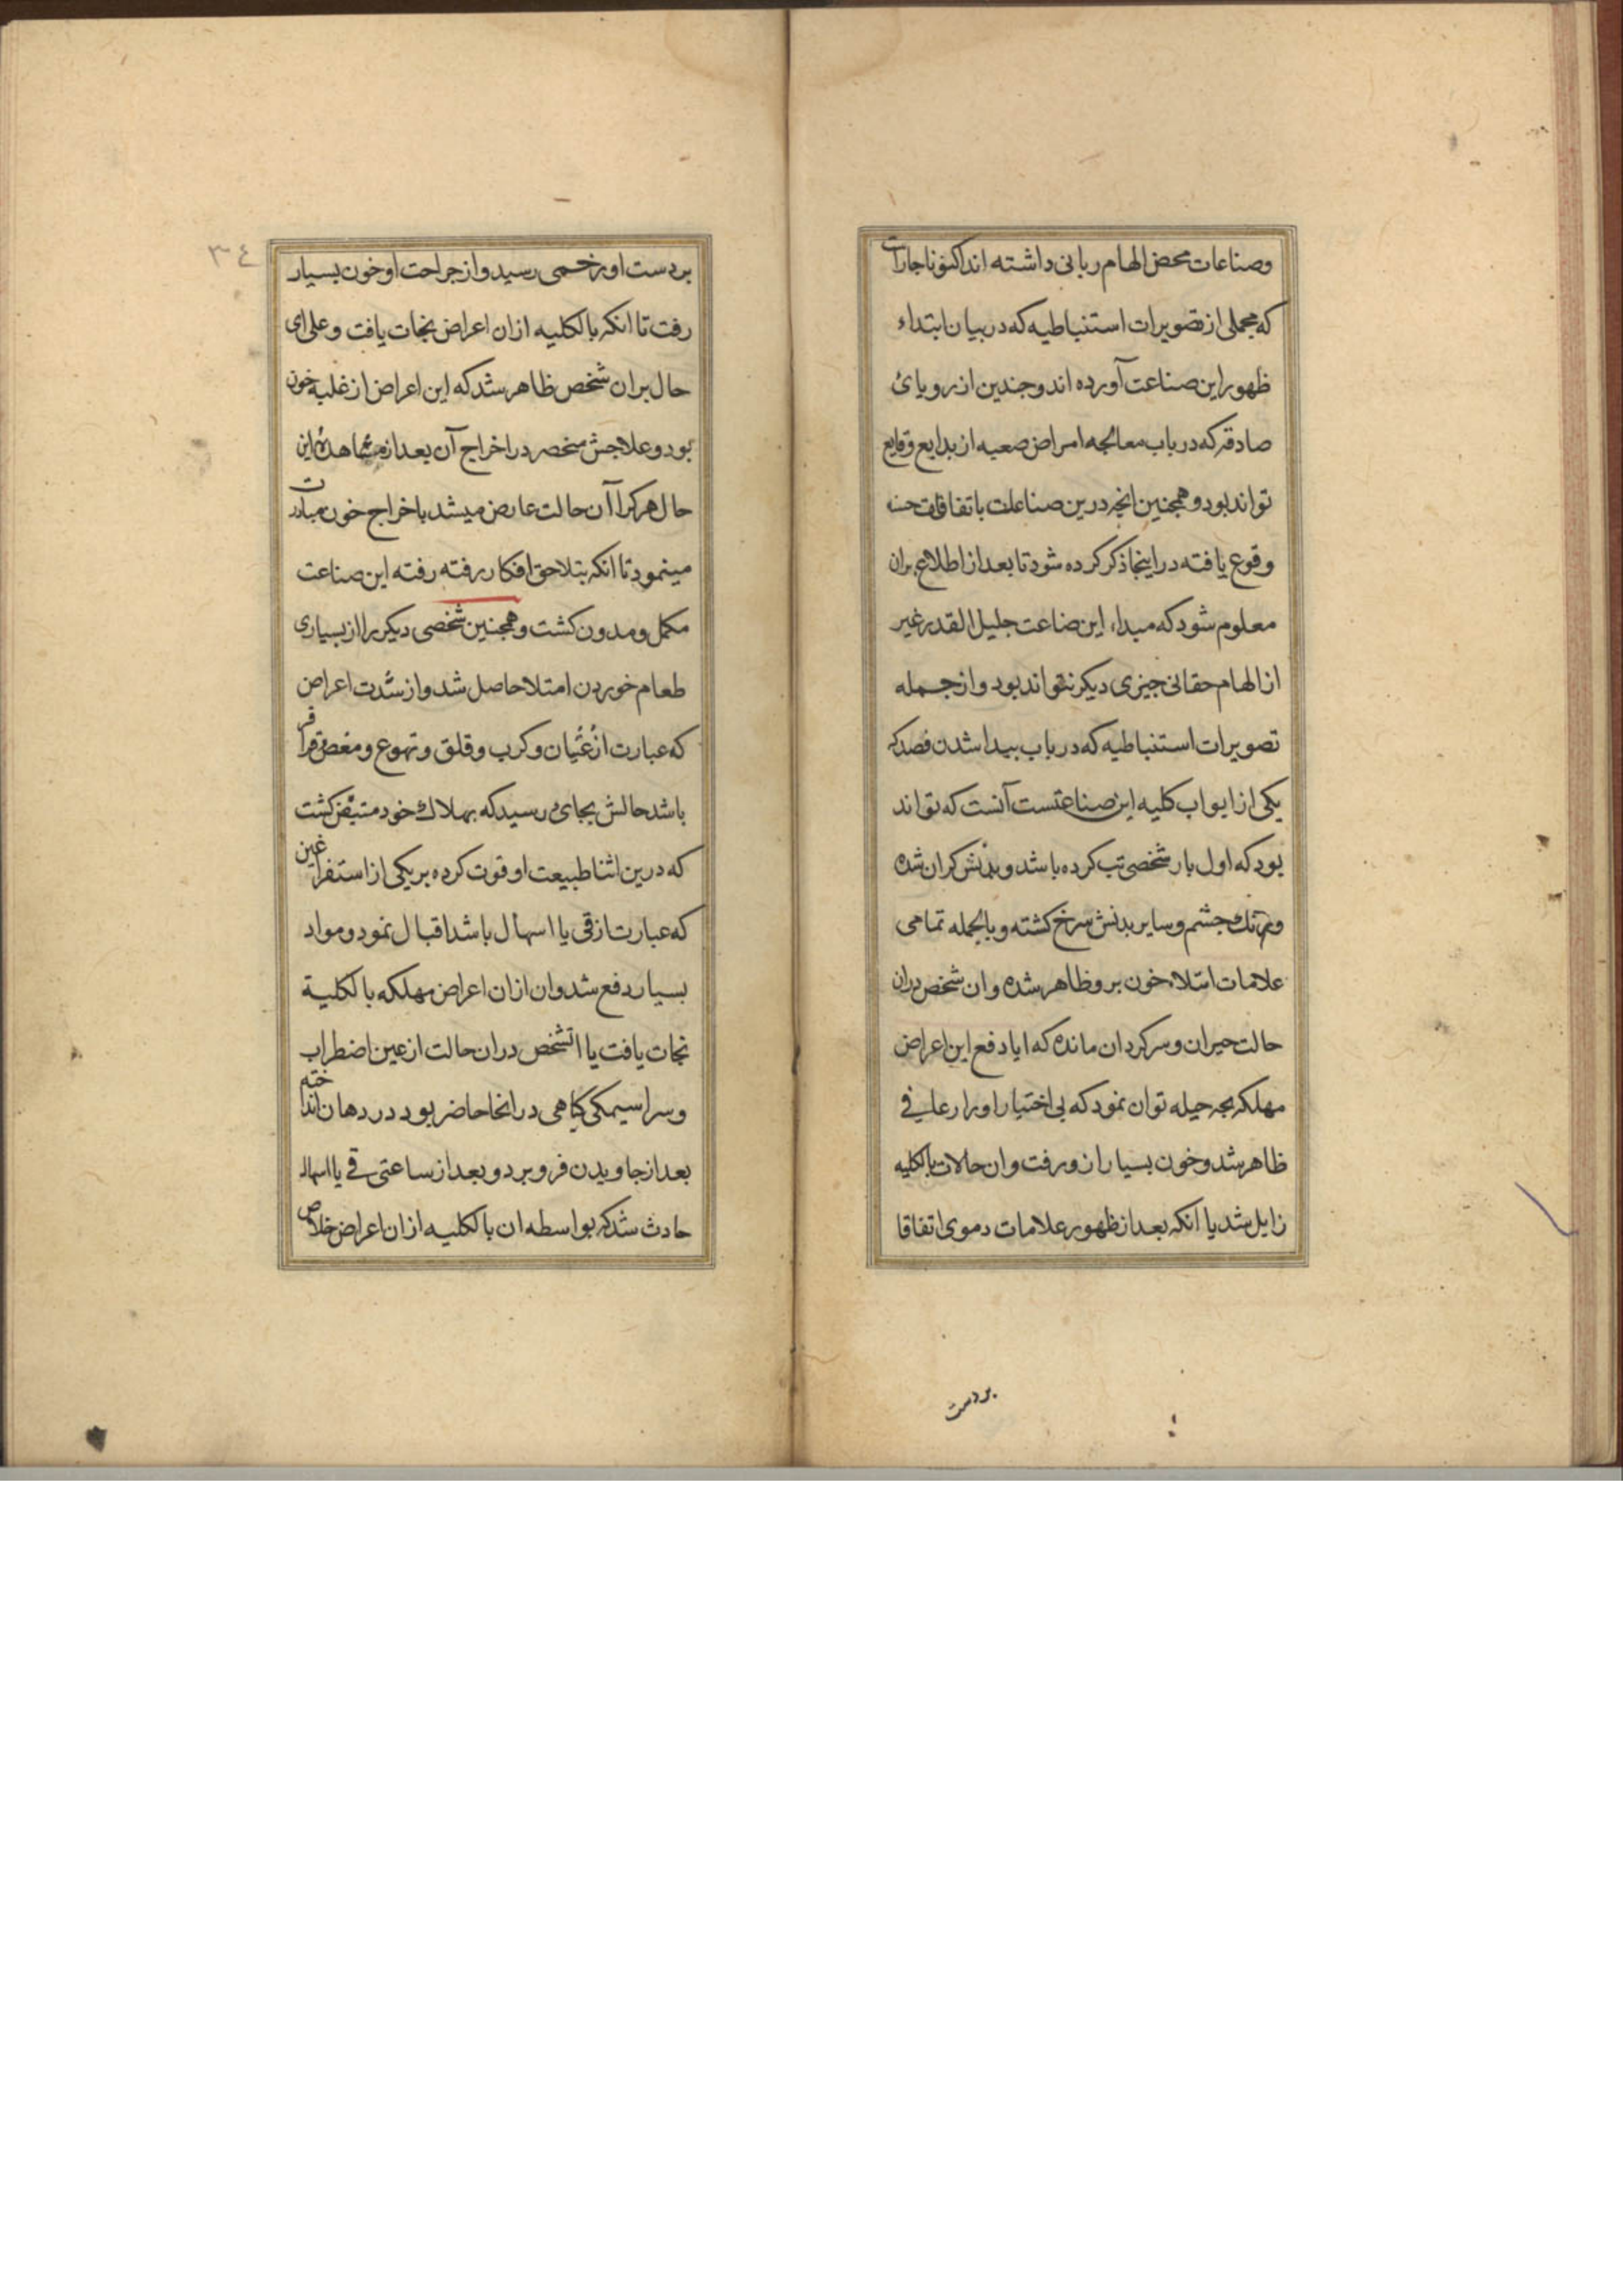 وصناعات محض الهام ربانی داشته اند اکنون ناجارات
که مجملی از تصویرات استنباطیه که در بیان ابتداء
ظهور این صناعت آورده اند وجندین از رویائ
صادقه که در باب معالجه امراض صعبه از بدایع وقایع
تواند بود و همجنین انجه درین صناعات باتفاقات حسنه
وقوع یافته در اینجا ذکر کرده شود تا بعد از اطلاع بران
معلوم شود که مبداء این صناعت جلیل القدر غیر
از الهام حقانی جیزی دیکر نتواند بود و از جمله
تصویرات استنباطیه که در باب بیدا شدن فصد که
یکی از ابواب کلیه این صناعتست آنست که تواند
بود که اول بار شخصی تب کرده باشد و بدنش کران شده
ورنک جشم و سایر بدنش سرخ کشته و بالجمله تمامی
علامات امتلاء خون برو ظاهر شده وان شخص دران
حالت حیران و سرکردان مانده که ایا دفع این اعراض
مهلکه بجه حیله توان نمود که بی اختیار او را رعافی
ظاهر شد و خون بسیار ازو رفت وان حالات بالکلیه
زایل شد یا انکه بعد از ظهور علامات دموی اتفاقا
بردست
٣٤
بردست او زخمی رسید و از جراحت او خون بسیار
رفت تا انکه بالکلیه ازان اعراض نجات یافت و علی ای
حال بران شخص ظاهر شد که این اعراض از غلبه خون
بود و علاجش منحصر در اخراج آن بعد از مشاهدۀ این
حال هر کرا آن حالت عارض میشد باخراج خون مبادرت
مینمود تا انکه بتلاحق افکار رفته رفته این صناعت
مکمل و مدون کشت و همجنین شخصی دیکر را از بسیاری
طعام خوردن امتلا حاصل شد و از شدت اعراض
که عبارت از غثیان و کرب و قلق و تهوع و مغص و قراقر
باشد حالش بجای رسید که بهلاک خود متیقن کشت
که درین اثنا طبیعت او قوت کرده بر یکی از استفراغین
که عبارت از قی یا اسهال باشد اقبال نمود و مواد
بسیار دفع شد وان ازان اعراض مهلکه بالکلیة
نجات یافت یا انشخص دران حالت از عین اضطراب
و سراسیمکی کیاهی در انجا حاضر بود در دهان انداخته
بعد از جاویدن فرو برد و بعد از ساعتی قی یا اسهال
حادث شد که بواسطه ان بالکلیه ازان اعراض خلاص